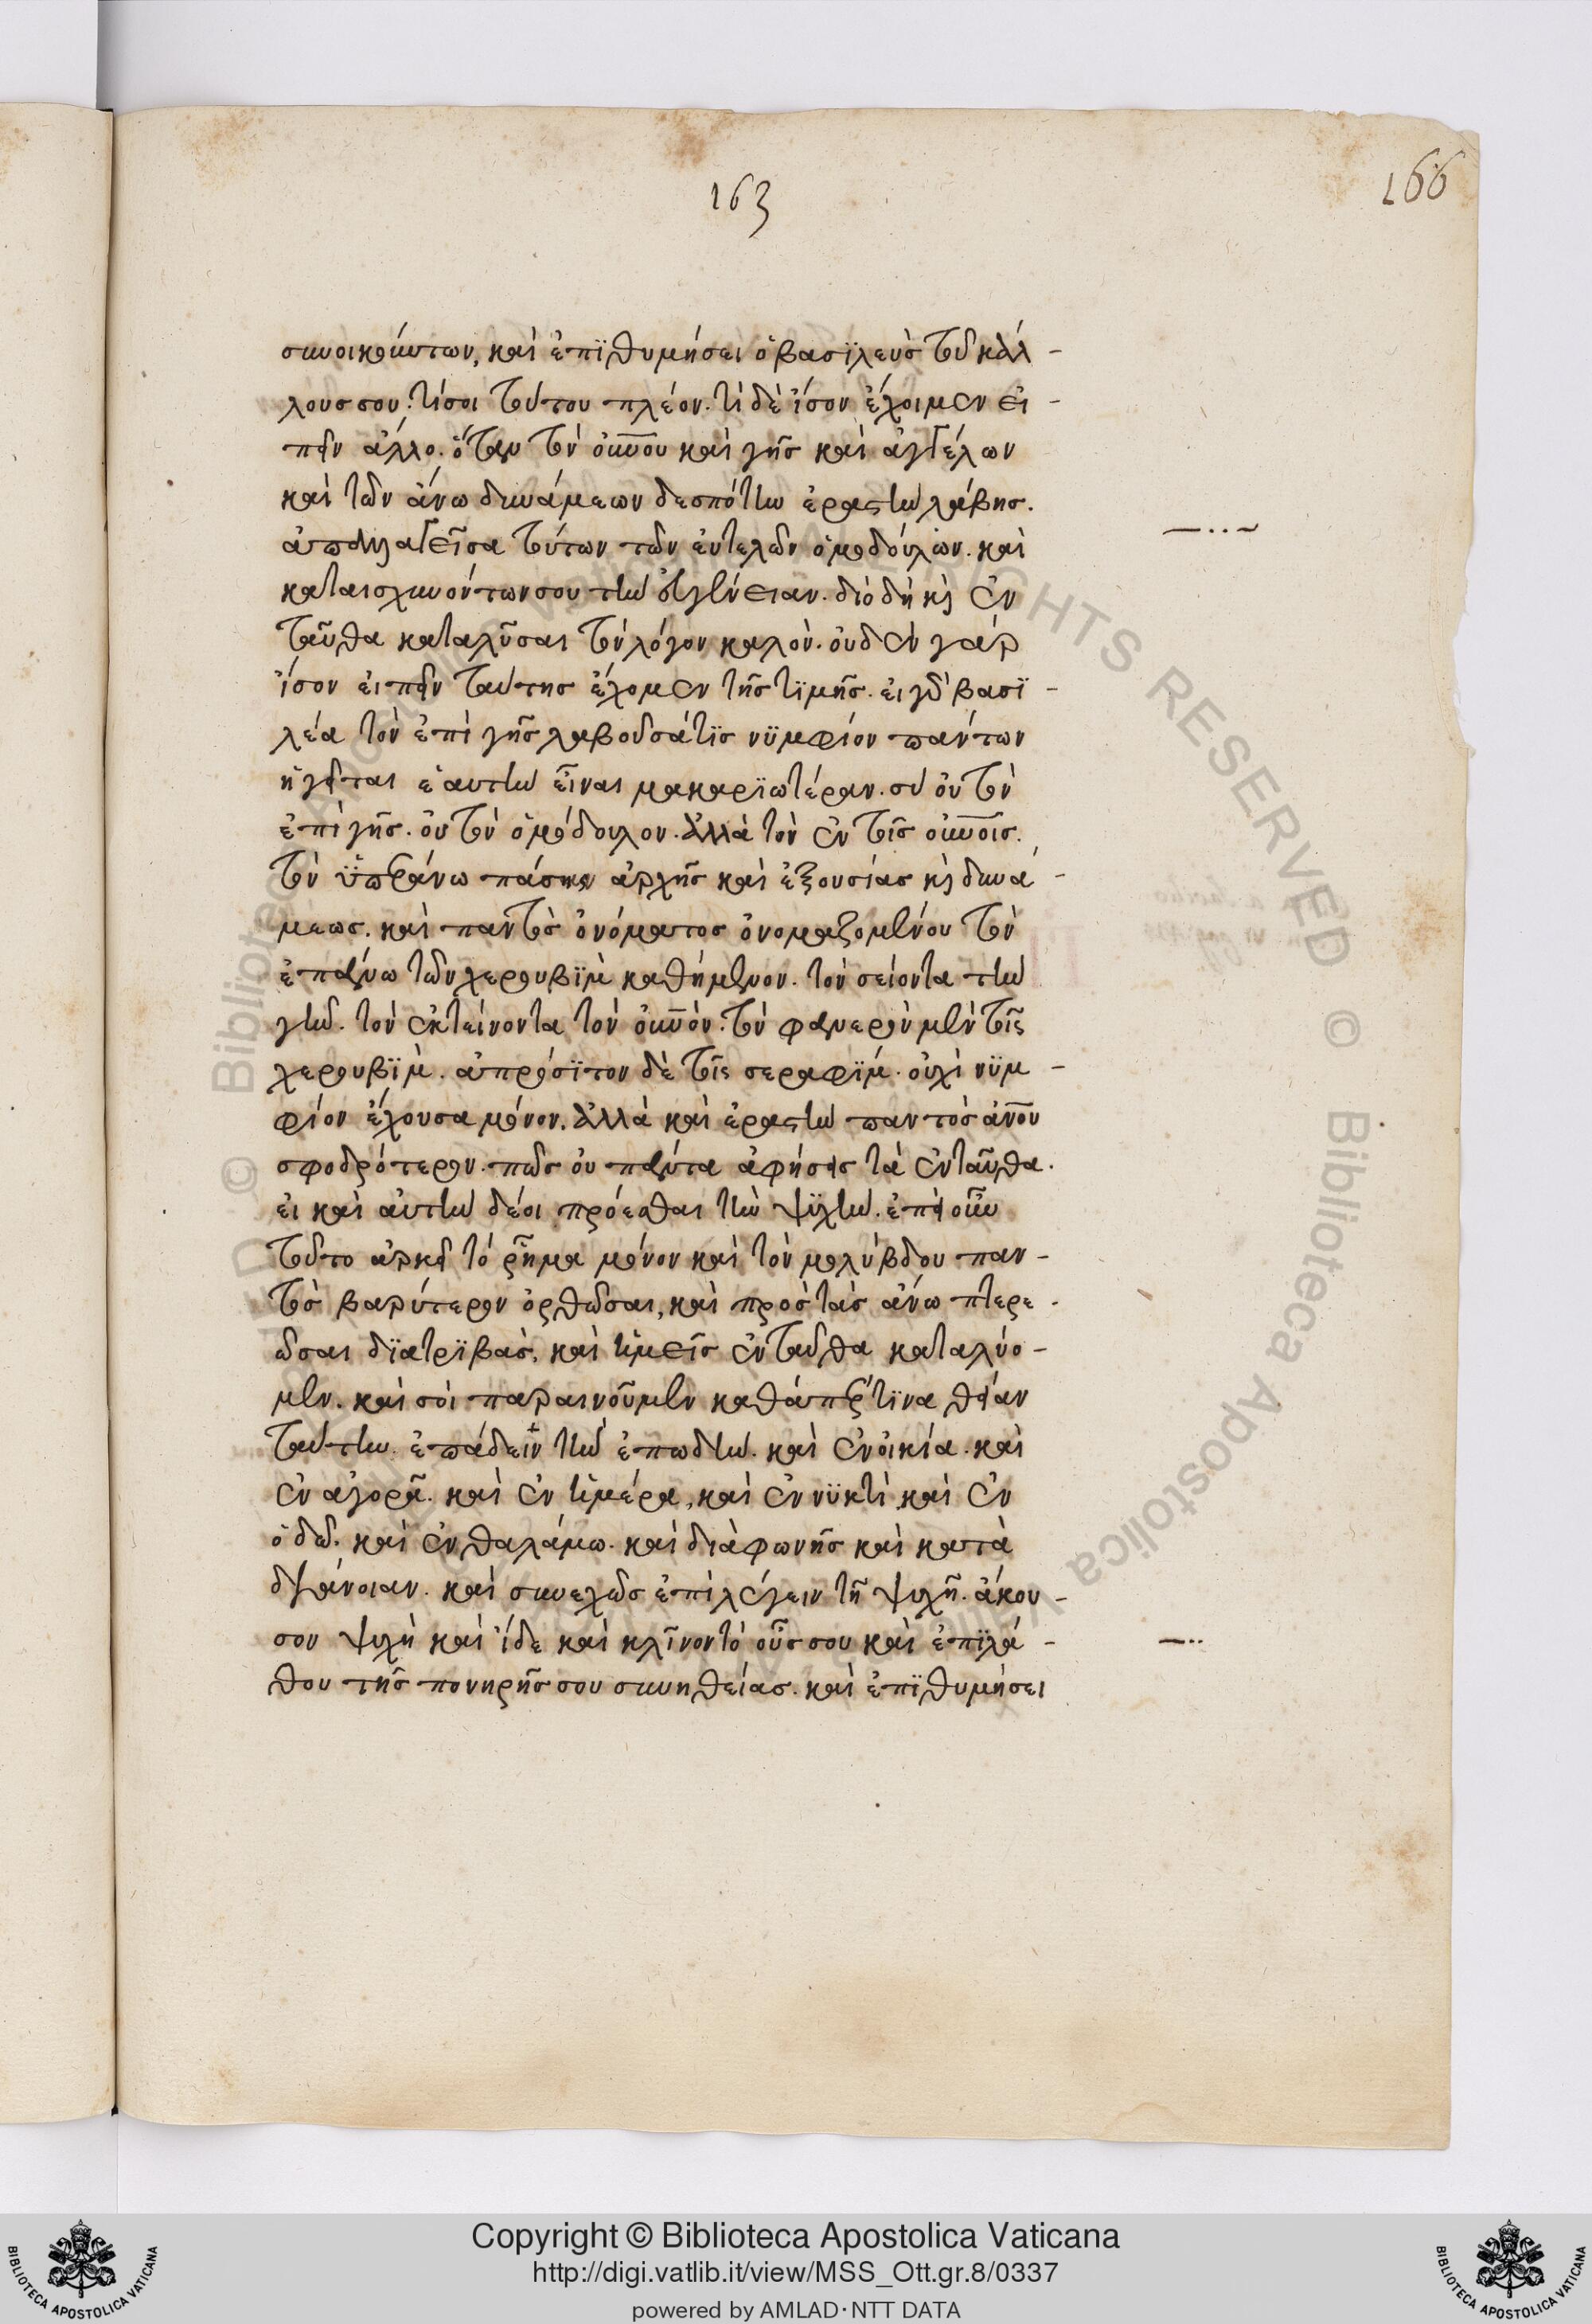 163
166
συνοικούντων, καὶ ἐπϊθυμήσει ὁ βασϊλεὺς τοῦ κάλ-
λους σου· τί σοι τούτου πλέον. τί δὲ ἴσον ἔχοιμεν εἰ-
πεῖν ἄλλο. ὅταν τὸν οὐνου καὶ γῆς καὶ ἀγγέλων
καὶ τῶν ἄνω δυνάμεων δεσπότην ἐραστὴν λάβης.
ἀπαλλαγεῖσα τούτων τῶν εὐτελῶν ὁμοδούλων. καὶ
καταισχυνόντων σου τὴν εὐγένειαν. διὸ δὴ κὶ ἐν
ταῦθα καταλῦσαι τὸν λόγον καλὸν. οὐδὲν γὰρ
ἴσον εἰπεῖν ταύτης ἔχομεν τῆς τϊμῆς. εἰ γὰρ βασϊ-
λέα τὸν ἐπὶ γῆς λαβοῦσά τϊς νϋμφίον πάντων
ἡγεῖται ἑαυτὴν εἶναι μακαρϊωτέραν. σὺ οὐ τὸν
ἐπὶ γῆς. οὐ τὸν ὁμόδουλον. ἀλλὰ τὸν ἐν τοῖς οὐνοις.
τὸν ὑπεράνω πάσης ἀρχῆς καὶ ἐξουσίας κὶ δυνά-
μεως. καὶ παντὸς ὀνόματος ὀνομαζομένου τὸν
ἐπάνω τῶν χερουβϊμ καθήμενον. τὸν σείοντα τὴν
γῆν. τὸν ἐκτείνοντα τὸν οὐνόν. τὸν φανερὸν μὲν τοῖς
χερουβϊμ. ἀπρόσϊτον δὲ τοῖς σεραφϊμ. οὐχὶ νϋμ-
φίον ἔχουσα μόνον. ἀλλὰ καὶ ἐραστὴν παντὸς ἀνου
σφοδρότερον. πῶς οὐ πάντα ἀφήσεις τὰ ἐνταῦθα.
εἰ καὶ αὐτὴν δέοι πρόεσθαι τὴν ψϋχήν. ἐπεὶ οὖν
τοῦτο ἀρκεῖ τὸ ῥῆμα μόνον καὶ τὸν μολύβδου παν-
τὸς βαρύτερον ὀρθῶσαι, καὶ πρὸς τὰς ἄνω πτερε-
ῶσαι δϊατρϊβὰς, καὶ ἡμεῖς ἐνταῦθα καταλύο-
μεν. καὶ σοὶ παραινοῦμεν καθάπερ τϊνα θείαν
ταύτην ἐπάδειν τὴν ἐπωδὴν. καὶ ἐν οἰκία. καὶ
ἐν ἀγορᾶ. καὶ ἐν ἡμέρα, καὶ ἐν νϋκτὶ καὶ ἐν
ὁδῶ. καὶ ἐν θαλάμω. καὶ διὰ φωνῆς καὶ κατὰ
διάνοιαν. καὶ συνεχῶς ἐπϊλέγειν τῆ ψυχῆ. ἄκου-
σον ψυχὴ καὶ ἴδε καὶ κλῖνον τὸ οὖς σου καὶ ἐπϊλά-
θου τῆς πονηρῆς σου συνηθείας. καὶ ἐπϊθυμήσει
© Biblioteca Apostolica Vaticana ALL RIGHTS RESERVED © Biblioteca Apostolica Vaticana
Copyright © Biblioteca Apostolica Vaticana
http://digi.vatlib.it/view/MSS_Ott.gr.8/0337
powered by AMLAD·NTT DATA
BIBLIOTECA APOSTOLICA VATICANA
BIBLIOTECA APOSTOLICA VATICANA